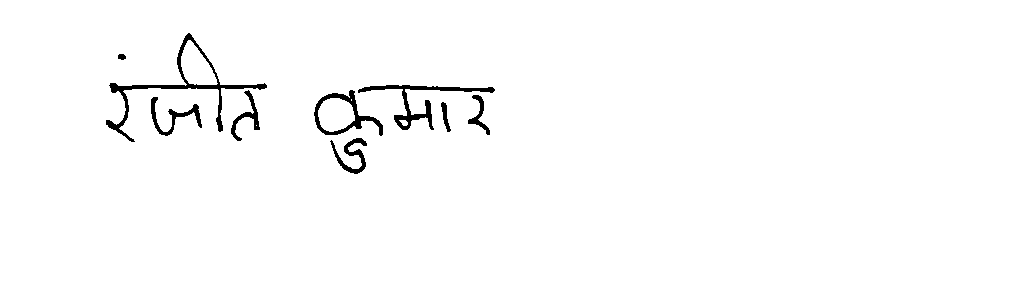 रंजीत कुमार